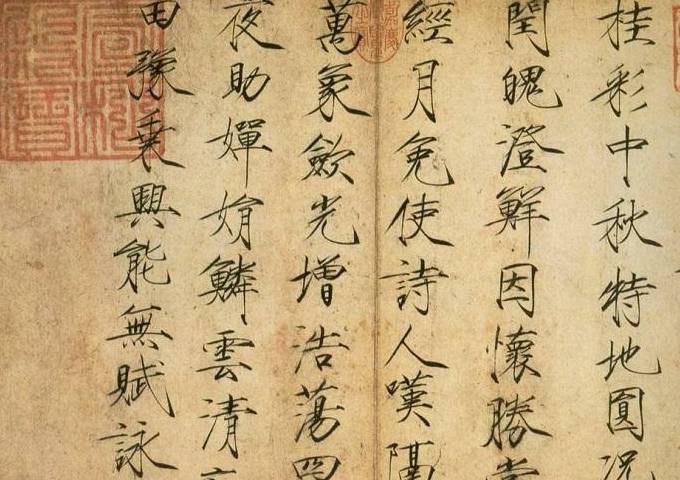 桂彩中秋特地圓況
閏魄澄鮮因懷勝賞
經月免使詩人嘆隔
萬象歛光增浩蕩四
夜助嬋娟鱗雲清
田豫乘興能無賦詠